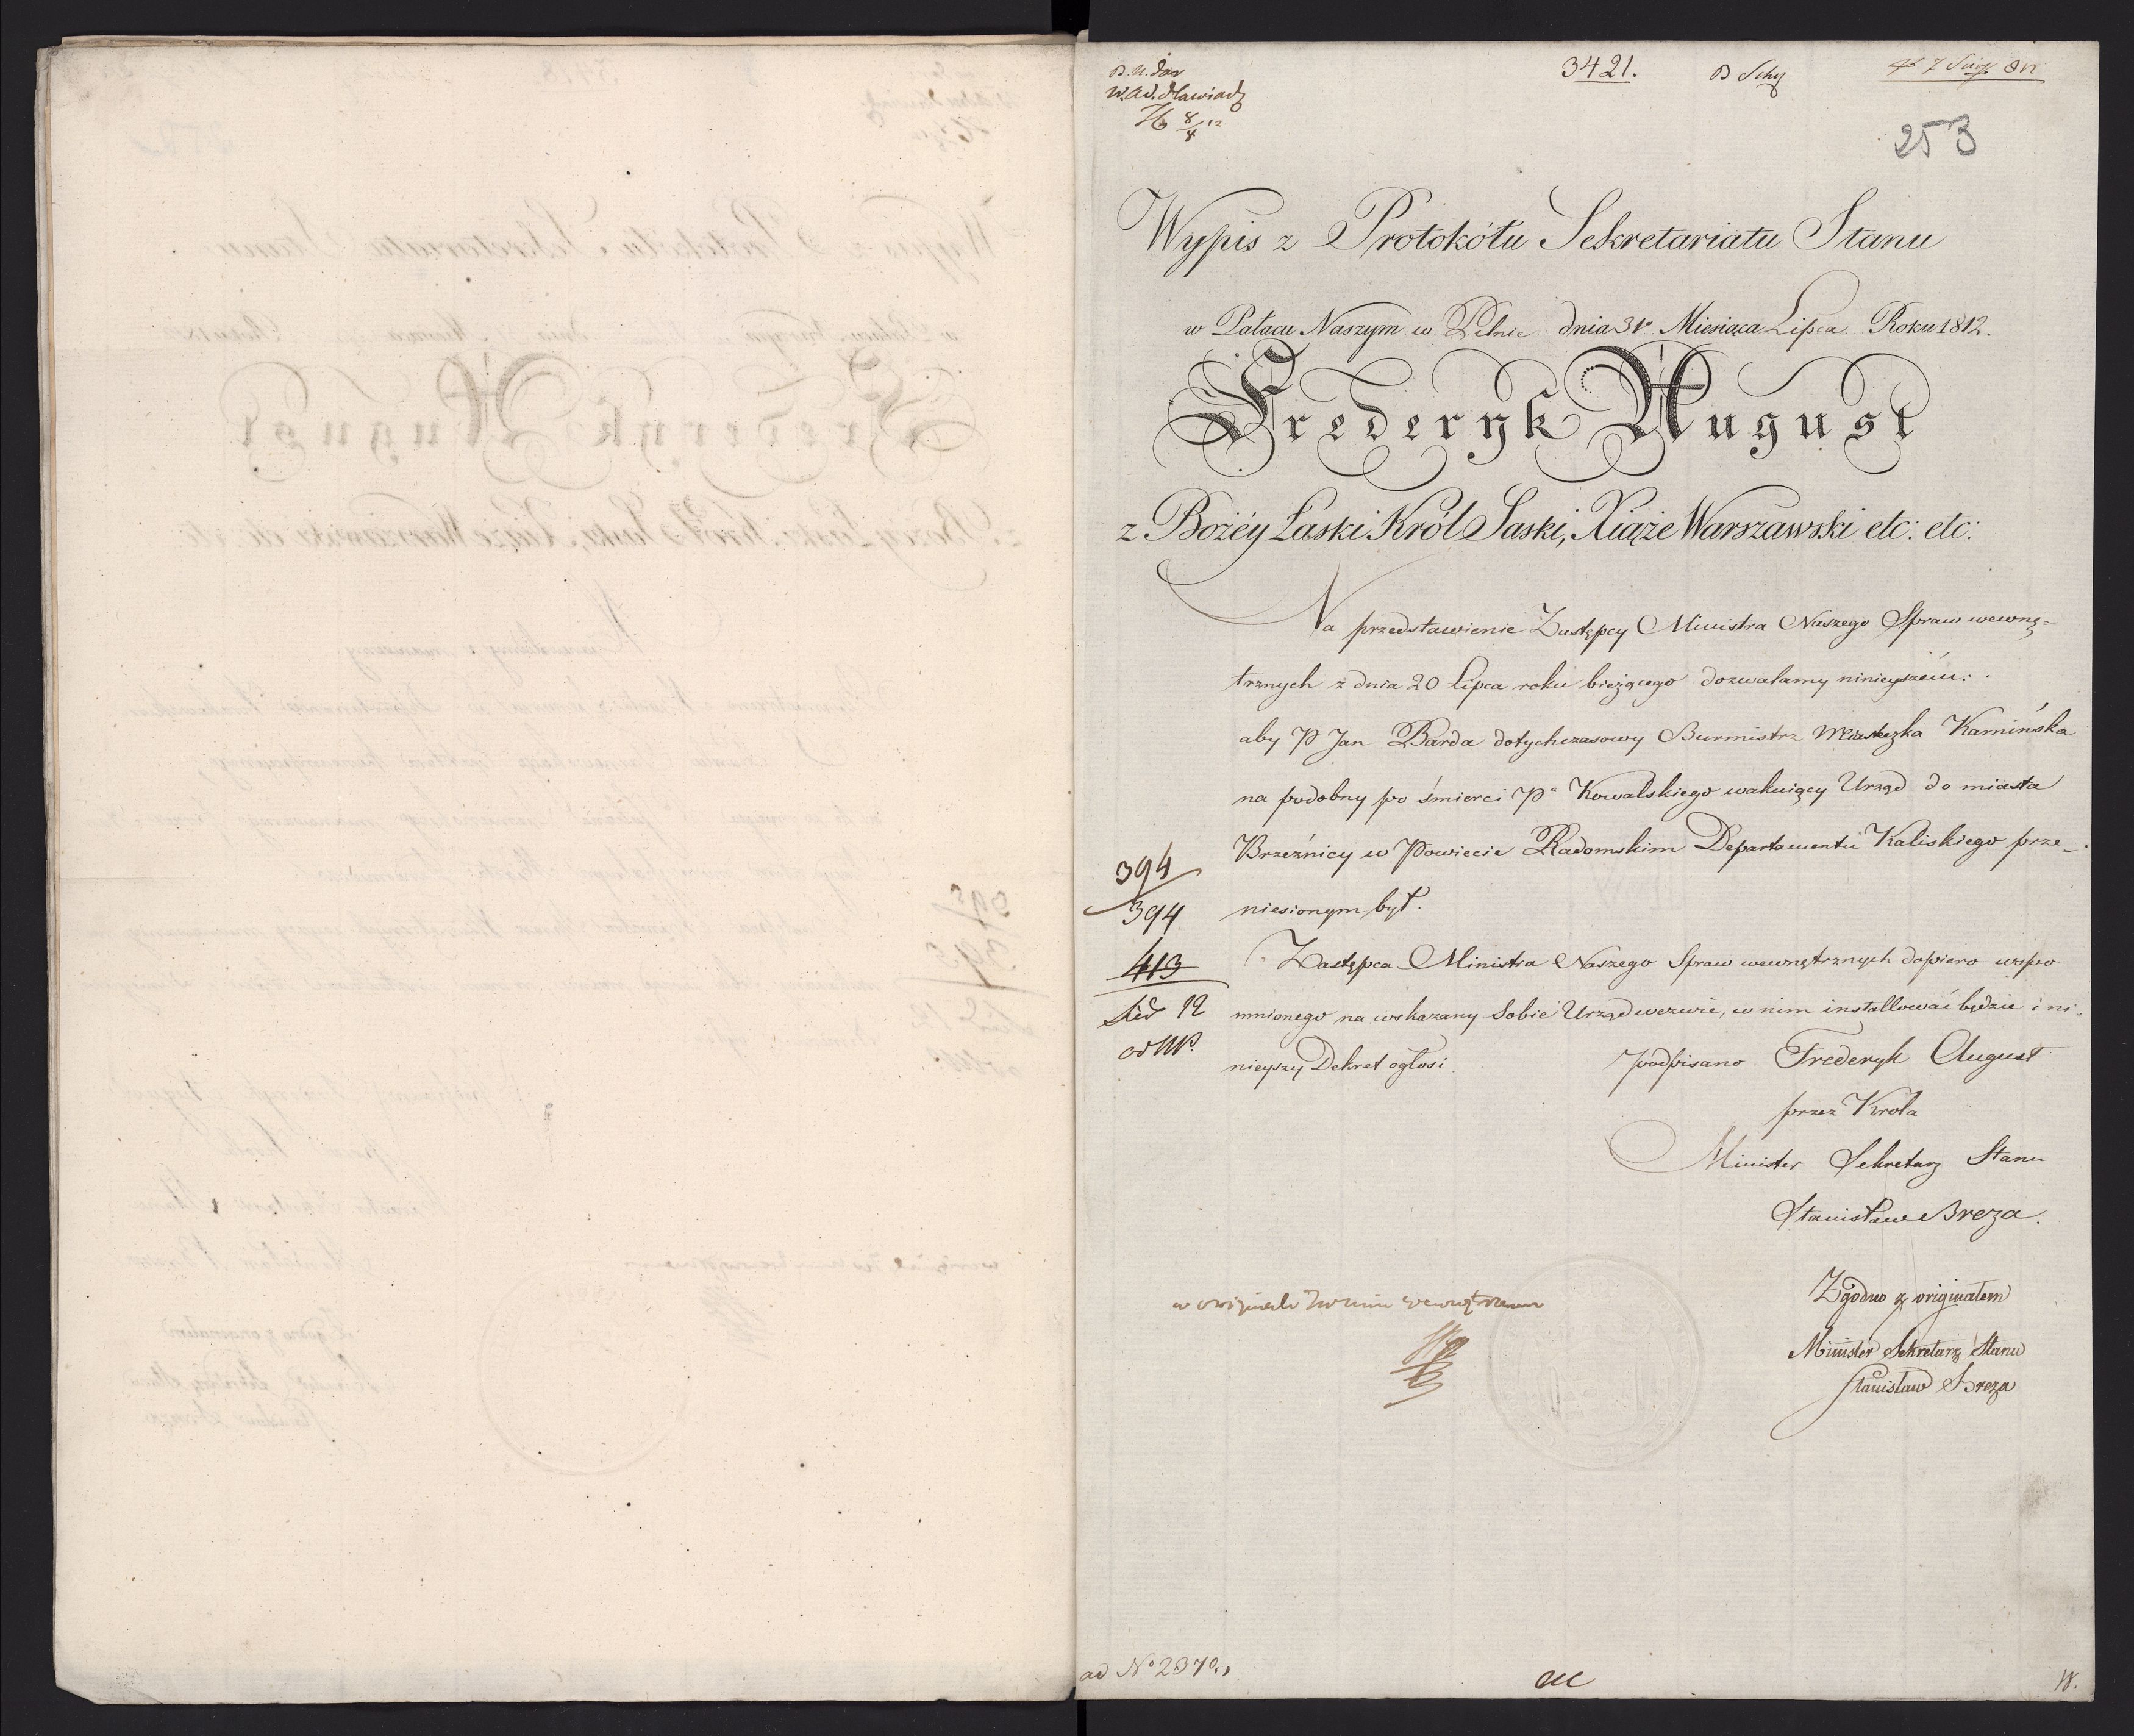 3421.
253
Wypis z Protokółu Sekretariatu Stanu
w Pałacu Naszym w Pelnic dnia 31º Miesiąca Lipca Roku 1812.
Frederyk August
z Bożéy Łaski Król Saski, Xiąże Warszawski etc: etc:
Na przedstawienie Zastępcy Ministra Naszego Spraw wewnę=
trznych z dnia 20 Lipca roku bieżącego dozwalamy ninieyszém:
aby P Jan Barda dotychczasowy Burmistrz Miasteczka Kamińska
na podobny po śmierci Pª Kowalskiego wakuiący Urząd do miasta
Brzeźnicy w Powiecie Radomskim Departamentu Kaliskiego prze_
niesionym był.
394
394
413
Zastępca Ministra Naszego Spraw wewnętrznych dopiero wspo
mnionego na wskazany sobie Urząd wezwie, w nim installować będzie i ni=
nieyszy Dekret ogłosi.
podpisano Frederyk August
przez Króla
Minister Sekretarz Stanu
Stanisław Breza.
Zgodno z originałem
Minister Sekretarz Stanu
Stanisław Breza
ad Nº 2370.